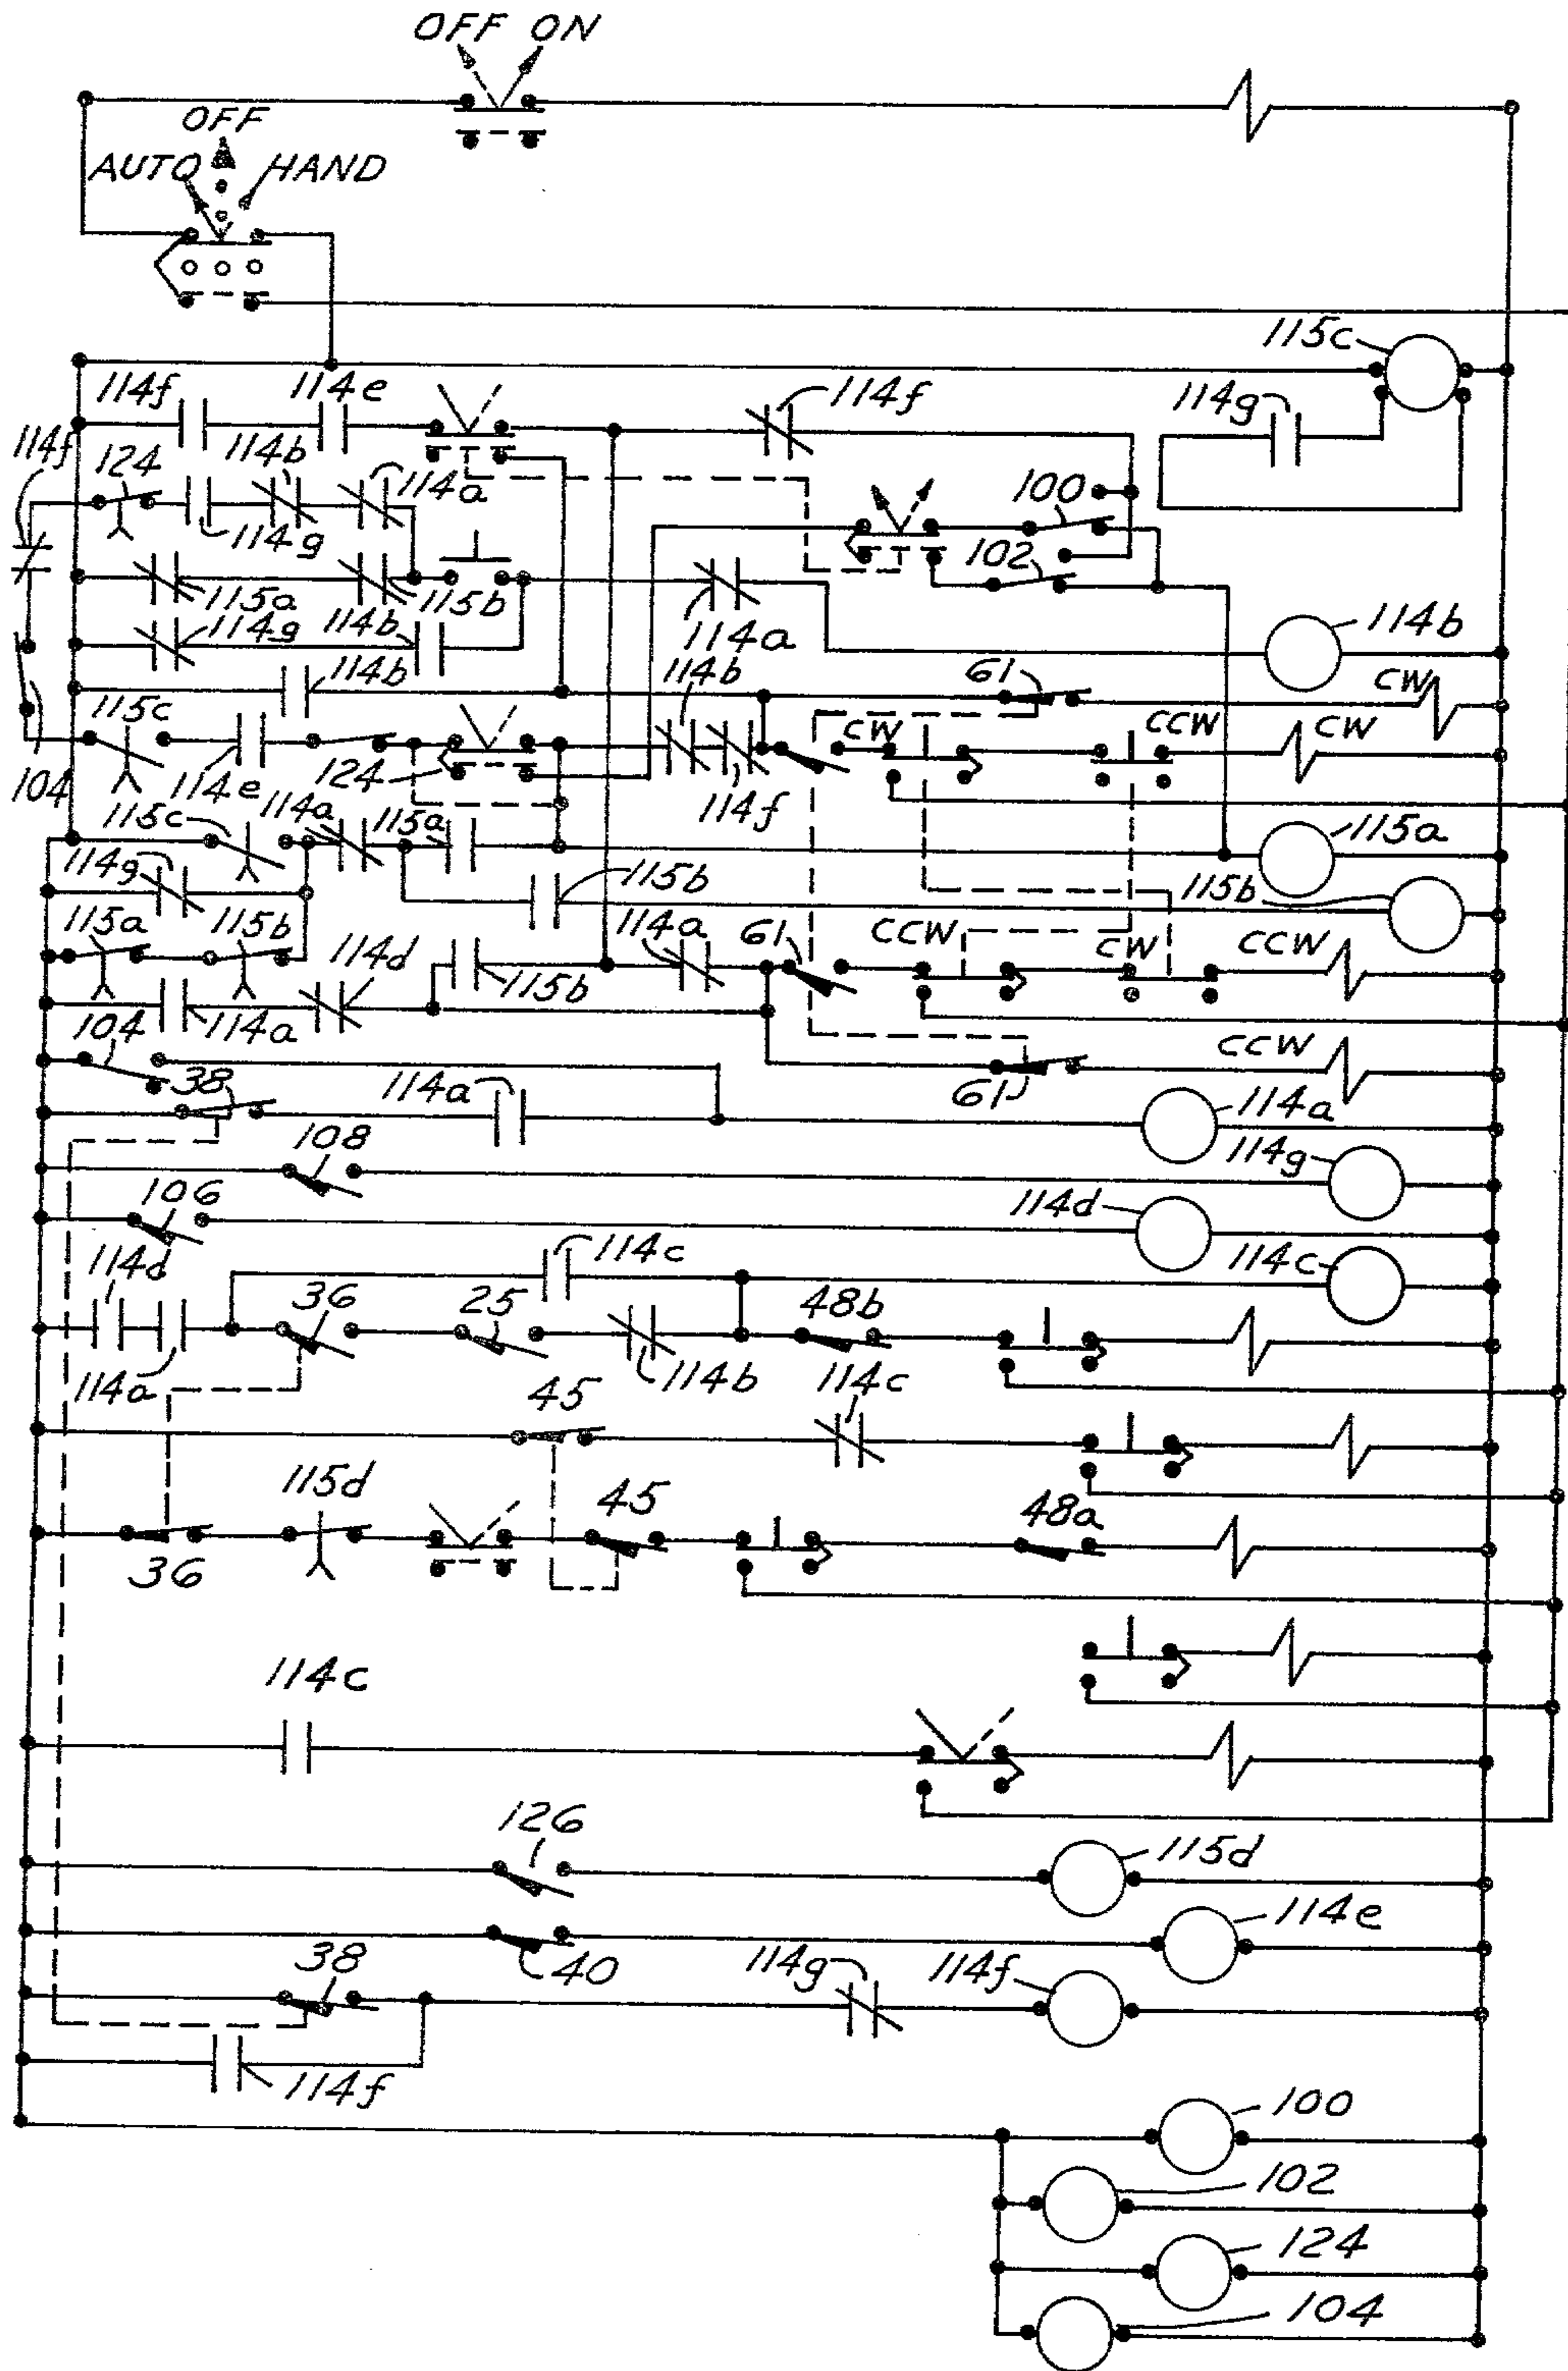 OFF ON
OFF
AUTO HAND
115c
114f 114e 114f
114g
114f 124 114b 114a
100
114g
102
115a 115b
114a
114g 114b 114b
114b 114b 61 CW
115c CW CCW CW
104 114e 124 114f
115c 114a 115a 115a
114g 115b 115b
115a 115b 114d 114a 61 CCW CW CCW
115b
104 114a CCW
38 114a 61 114a
108 114g
106 114d
114d 114c 114c
36 25 48b
114a 114b 114c
45
115d 45 48a
36
114c
126 115d
114e
38 40 114g 114f
114f
100
102
124
104